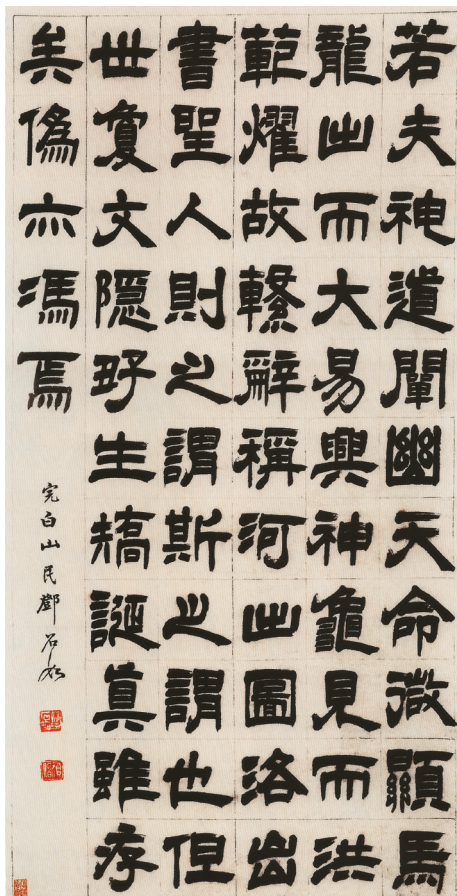 若夫神道闡幽天命微顯馬
龍出而大易興神龜見而洪
範燿故繫辭稱河出圖洛出
書聖人則之謂斯之謂也但
世夐文隱好生矯誕眞雖存
矣偽亦馮焉
完白山民鄧石如